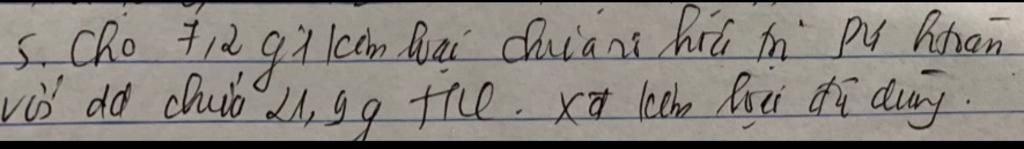 5. Cho 7,2 g 1 kim loại chưa rõ hóa trị pứ htoàn
với dd chứa 21,9g HCl. Xđ kim loại đã dùng.